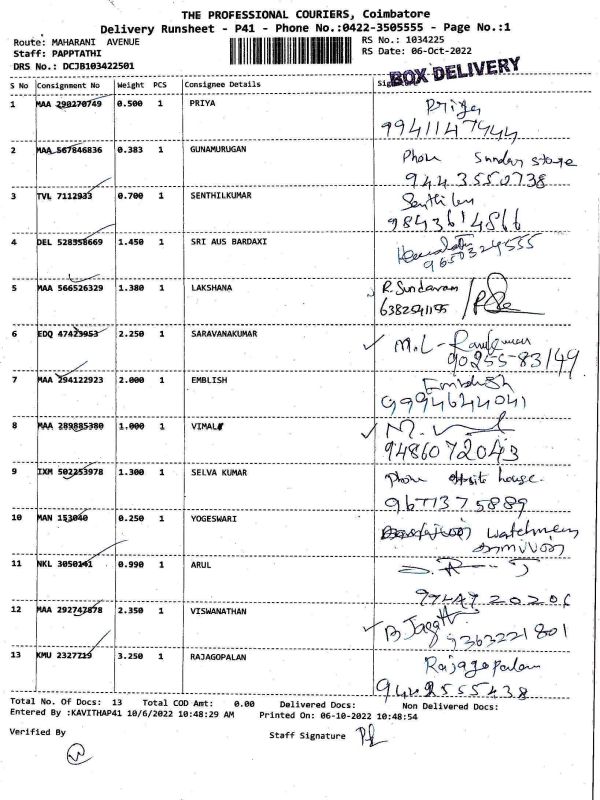 THE PROFESSIONAL COURIERS, Coimbatore
Delivery Runsheet - P41 - Phone No.:0422-3505555 - Page No.:1
Route: MAHARANI AVENUE RS No.: 1034225
Staff: PAPPTATHI RS Date: 06-Oct-2022
DRS No.: DCJB103422501
BOX DELIVERY
S No Consignment No Weight PCS Consignee Details Signature
1 MAA 290270749 0.500 1 PRIYA Priya
9941147944
2 MAA 567846836 0.383 1 GUNAMURUGAN Phone Sunday store
9443550738
3 TVL 7112933 0.700 1 SENTHILKUMAR
9843614866
4 DEL 528958669 1.450 1 SRI AUS BARDAXI
9650329555
5 MAA 566526329 1.380 1 LAKSHANA R. Sundaram
6382591195
6 EDQ 47423953 2.250 1 SARAVANAKUMAR M.L-
90255-83149
7 MAA 294122923 2.000 1 EMBLISH
9994644041
8 MAA 289885380 1.000 1 VIMAL
9486072043
9 IXM 502253978 1.300 1 SELVA KUMAR Phone opsite house.
9677375889
10 MAN 153040 0.250 1 YOGESWARI watchmen
11 NKL 3050141 0.990 1 ARUL
12 MAA 292747878 2.350 1 VISWANATHAN B Jagath
9363221801
13 KMU 2327719 3.250 1 RAJAGOPALAN Rajagopalan
9442555438
Total No. Of Docs: 13 Total COD Amt: 0.00 Delivered Docs: Non Delivered Docs:
Entered By :KAVITHAP41 10/6/2022 10:48:29 AM Printed On: 06-10-2022 10:48:54
Verified By Staff Signature